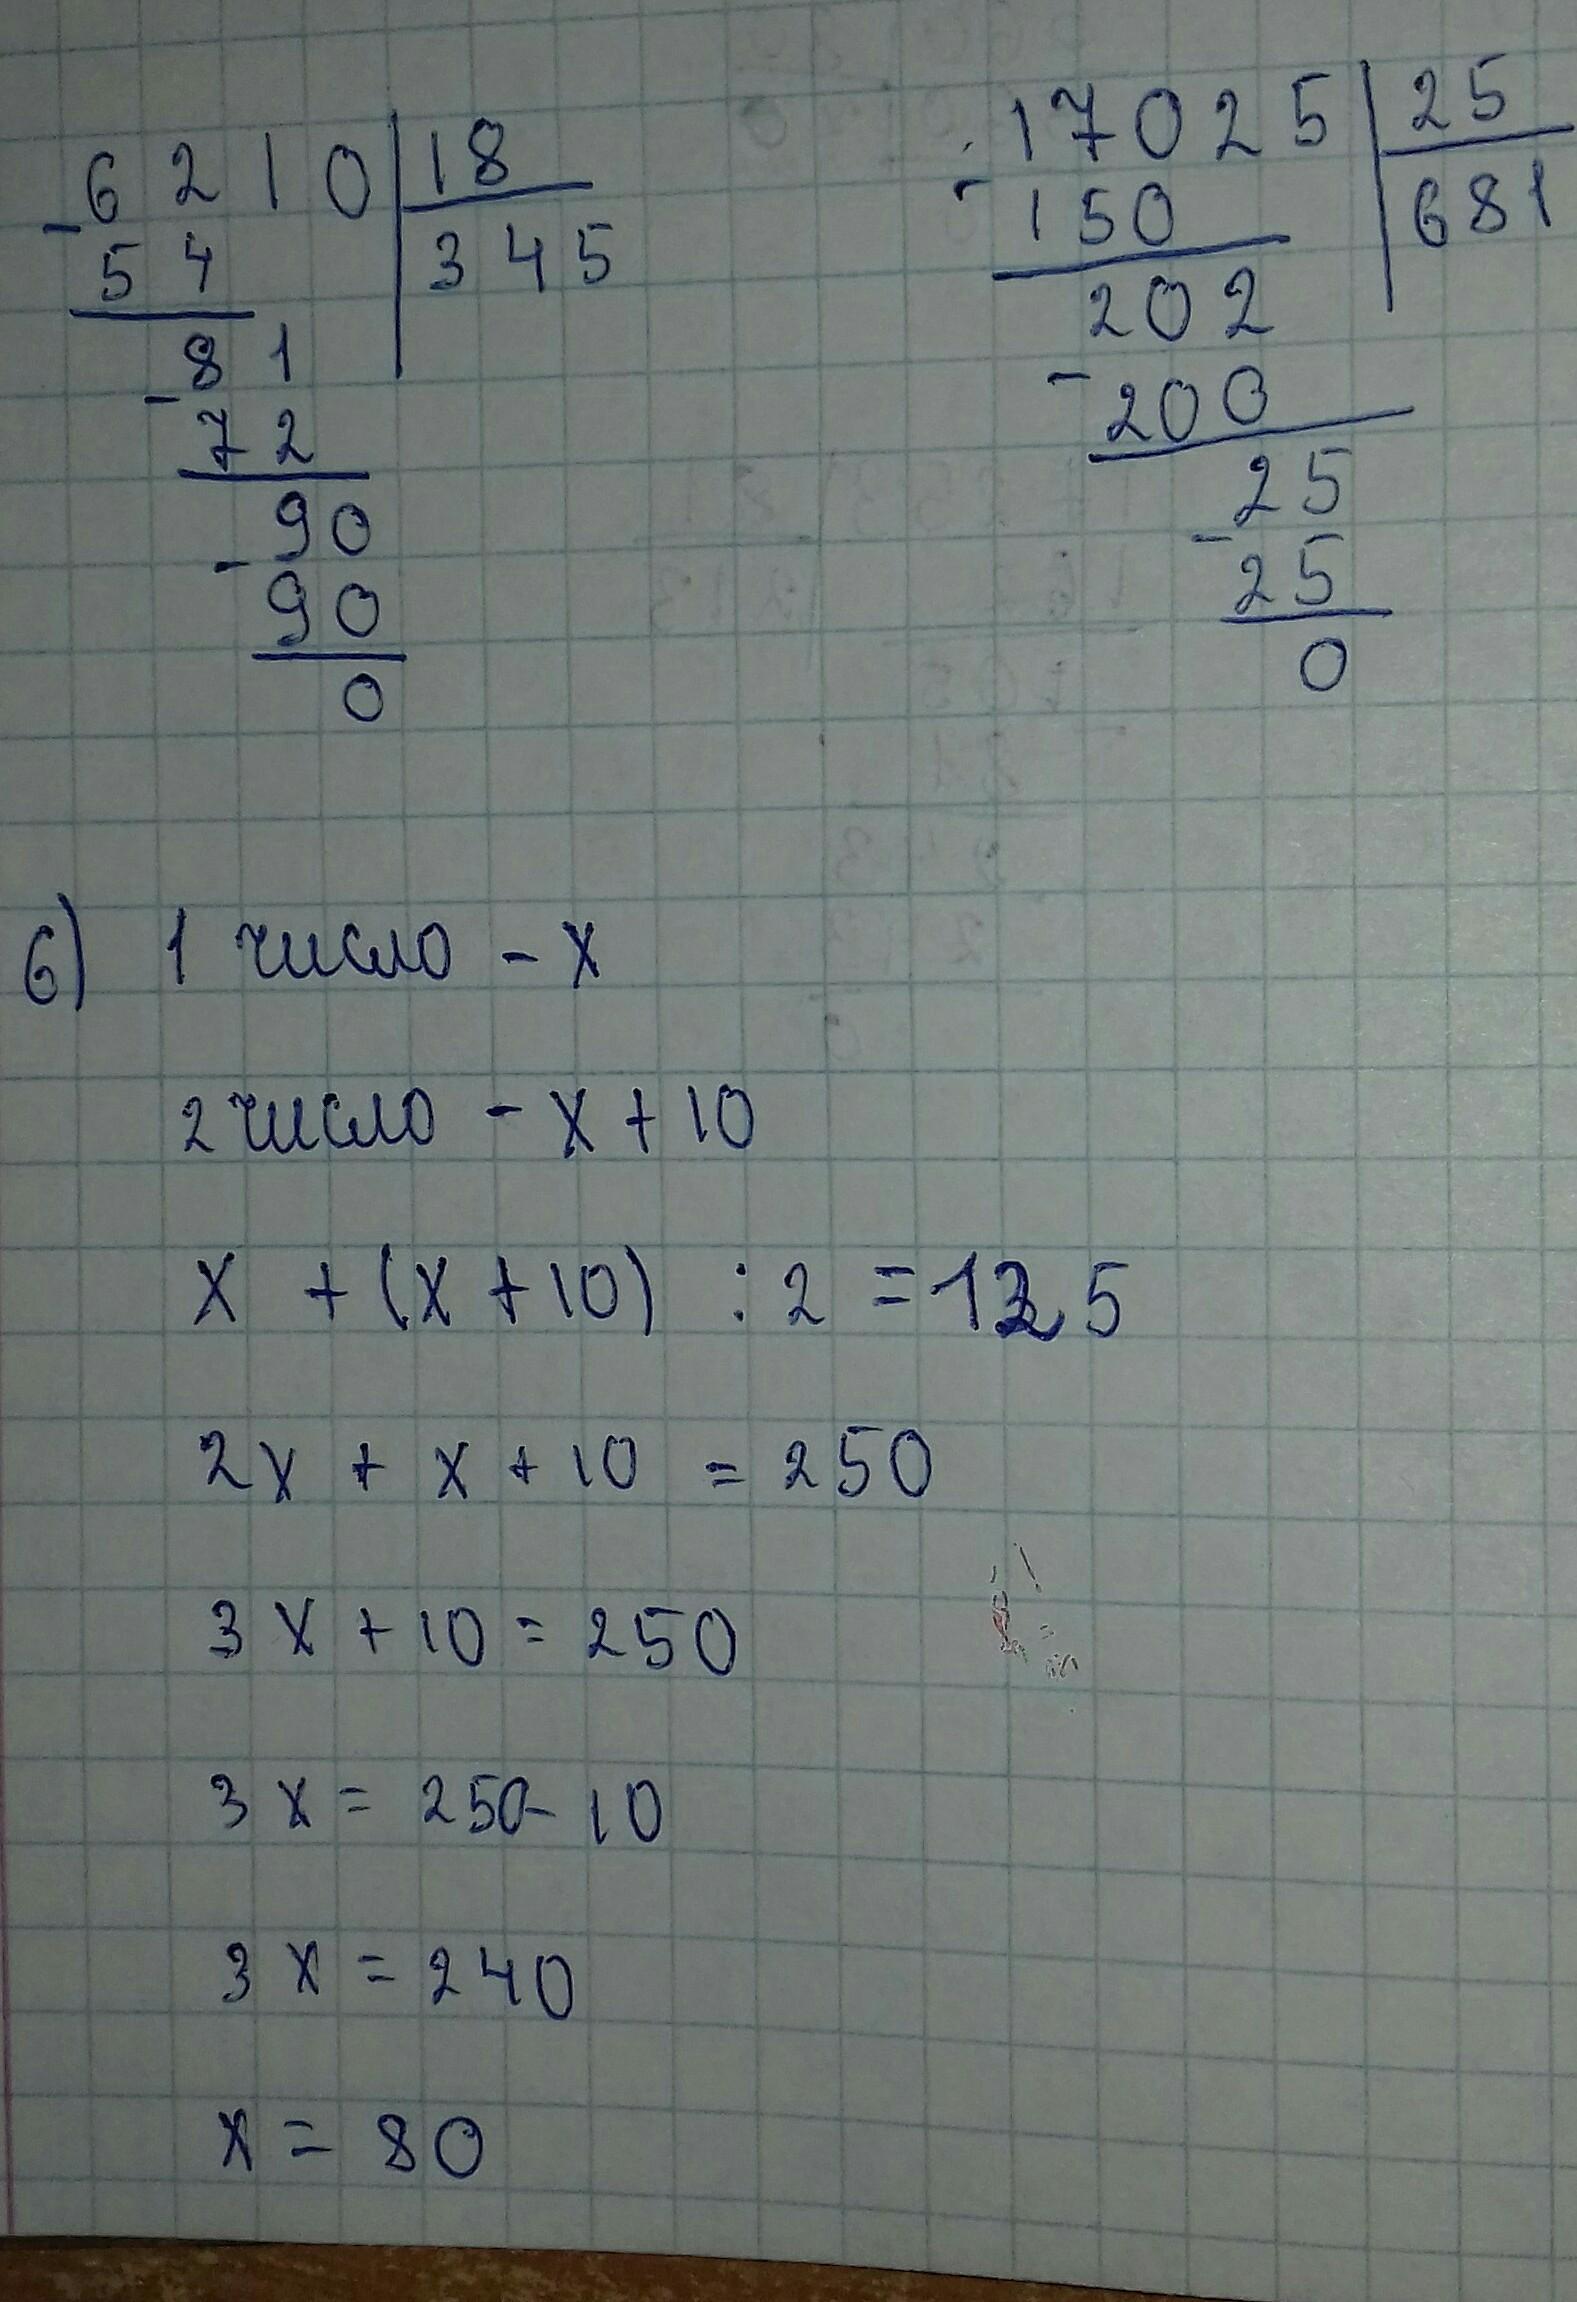 6210 18
54 345
81
72
90
90
0
17025 25
150 681
202
200
25
25
0
6) 1 число - x
2 число - x + 10
x + (x + 10) : 2 = 125
2x + x + 10 = 250
3x + 10 = 250
3x = 250 - 10
3x = 240
x = 80